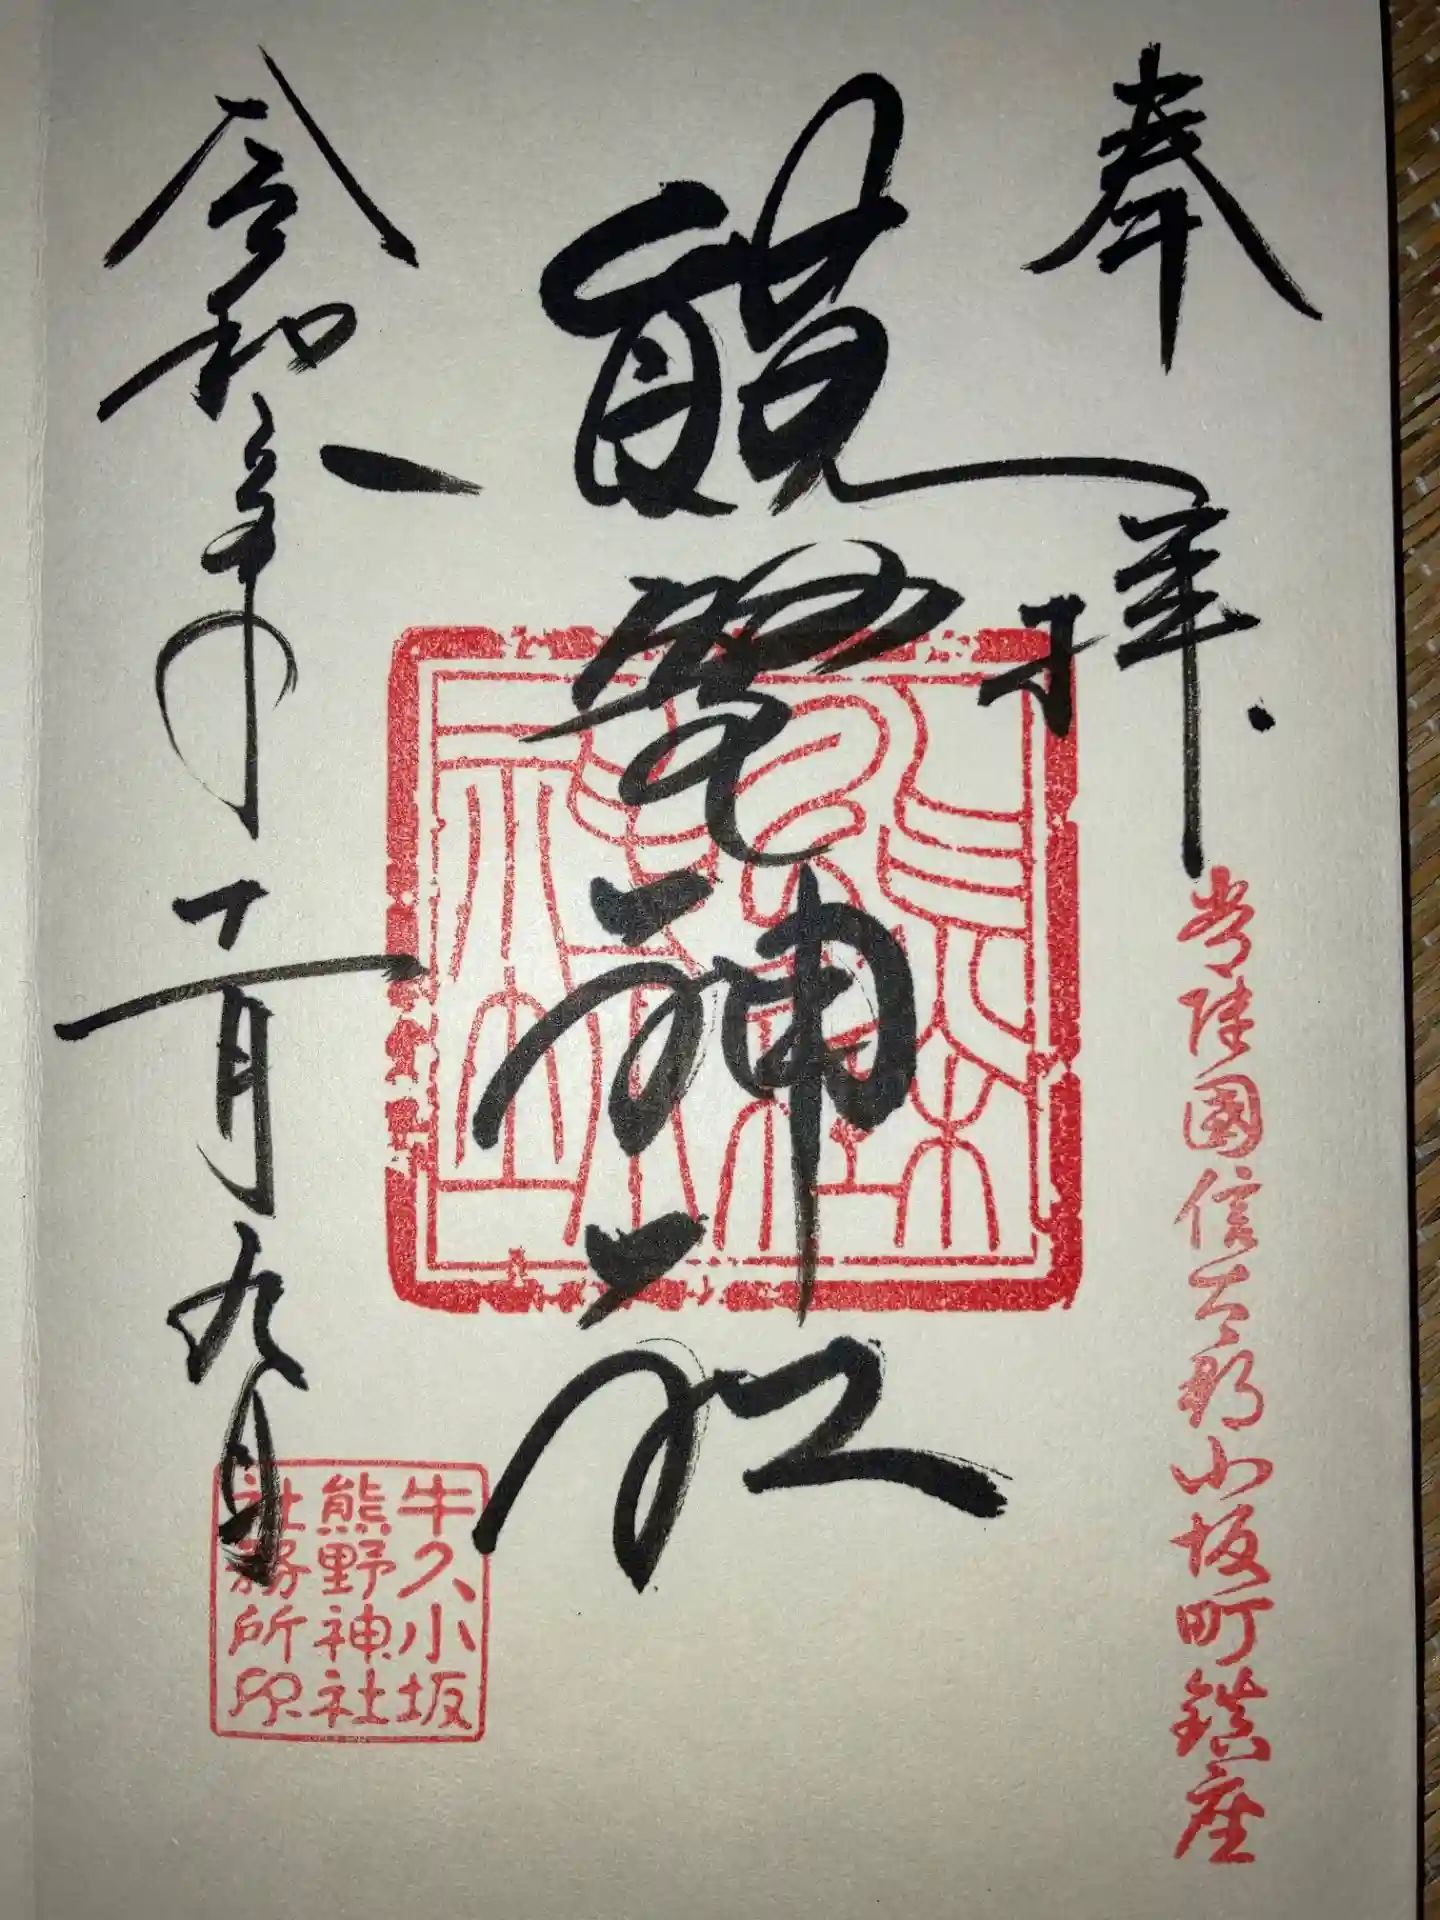 奉拝
常陸國信太郡小坂町鎮座
熊野神社
令和六年十一月九日
牛久小坂
熊野神社
社務所印